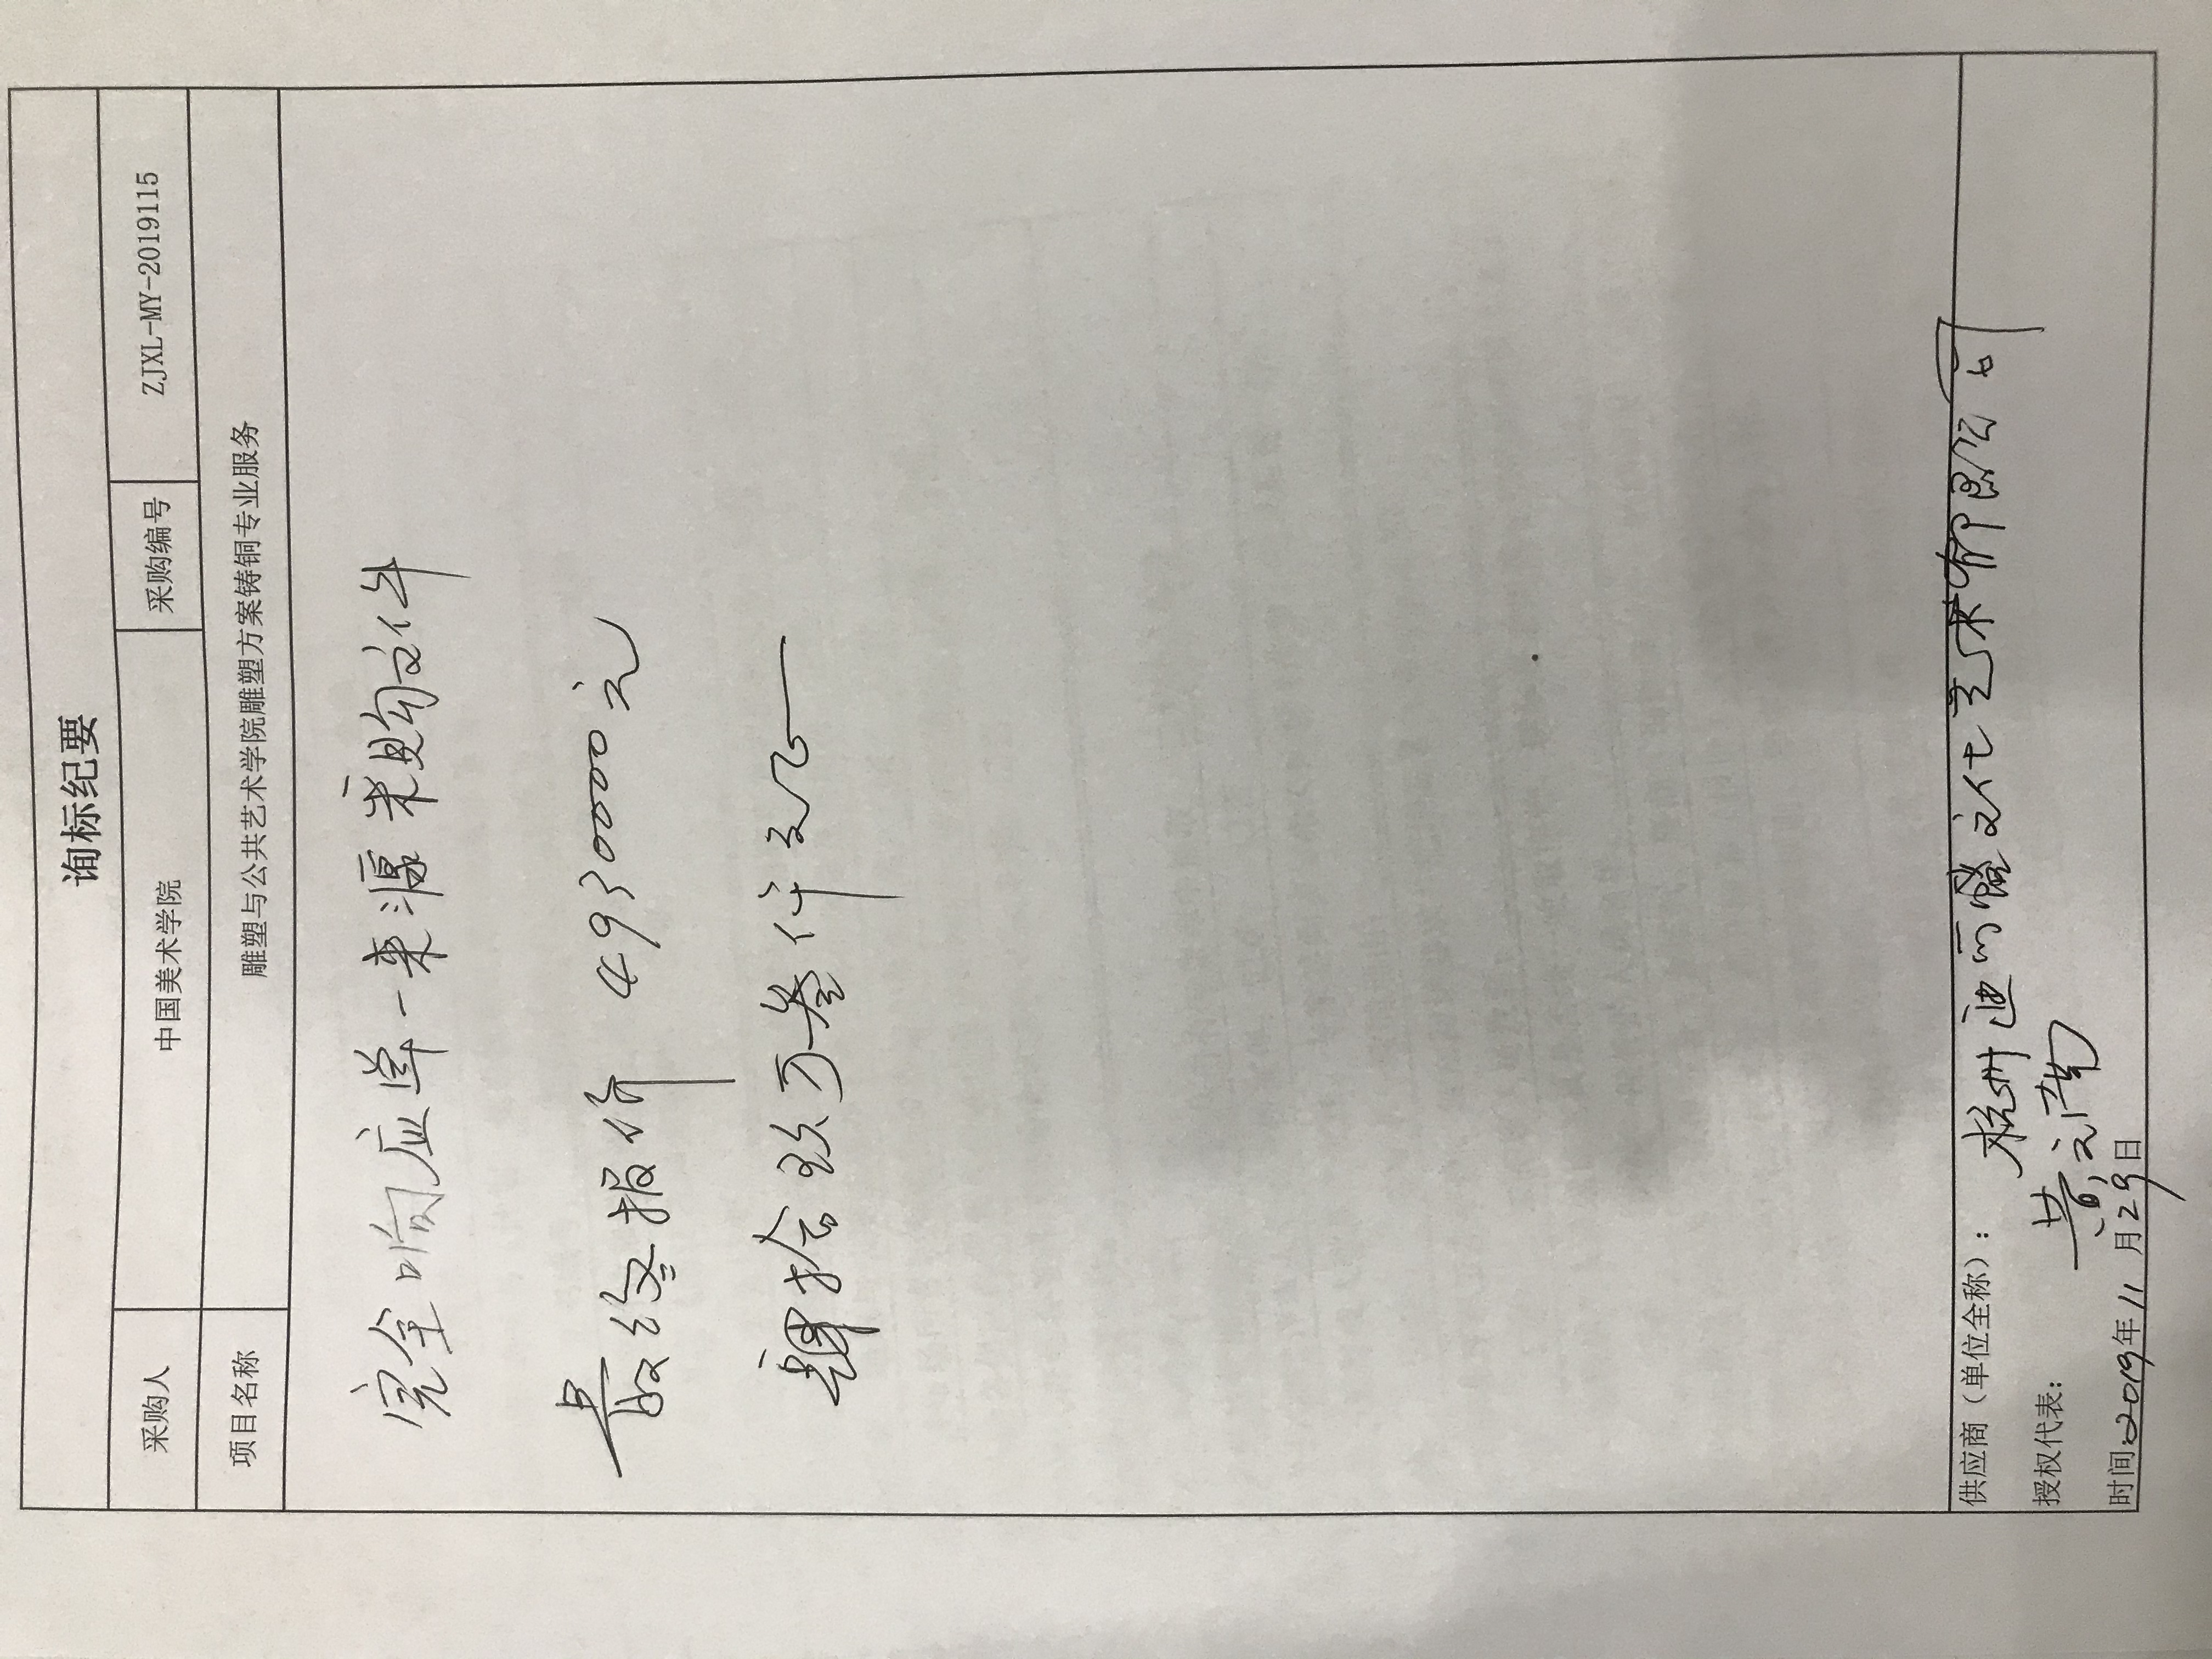 询标纪要
采购人 中国美术学院 采购编号 ZJXL-MY-2019115
项目名称 雕塑与公共艺术学院雕塑方案铸铜专业服务
完全响应单一来源采购文件
最终报价 49300000元
肆拾玖万叁仟元
供应商（单位全称）： 杭州迪文化艺术有限公司
授权代表： 黄
时间2019年11月29日